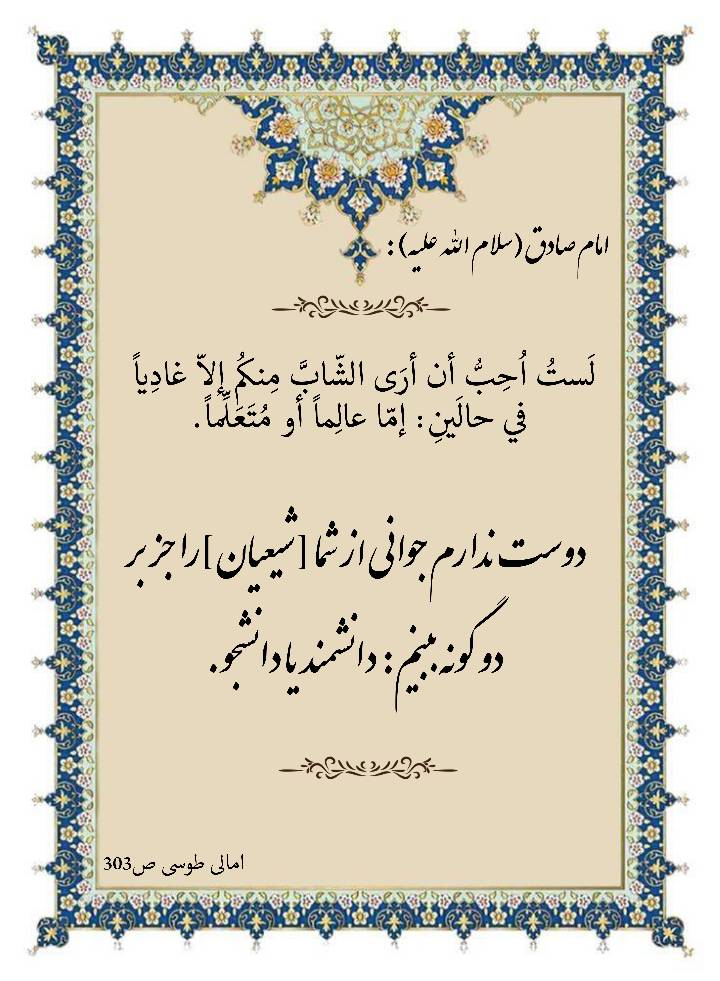 امام صادق (سلام الله علیه) :
لَستُ اُحِبُّ أن أرَى الشّابَّ مِنكُم إلاّ غادِياً
في حالَينِ : إمّا عالِماً أو مُتَعَلِّماً.
دوست ندارم جوانی از شما [شیعیان] را جز بر
دو گونه ببینم : دانشمند یا دانشجو.
امالی طوسی ص303